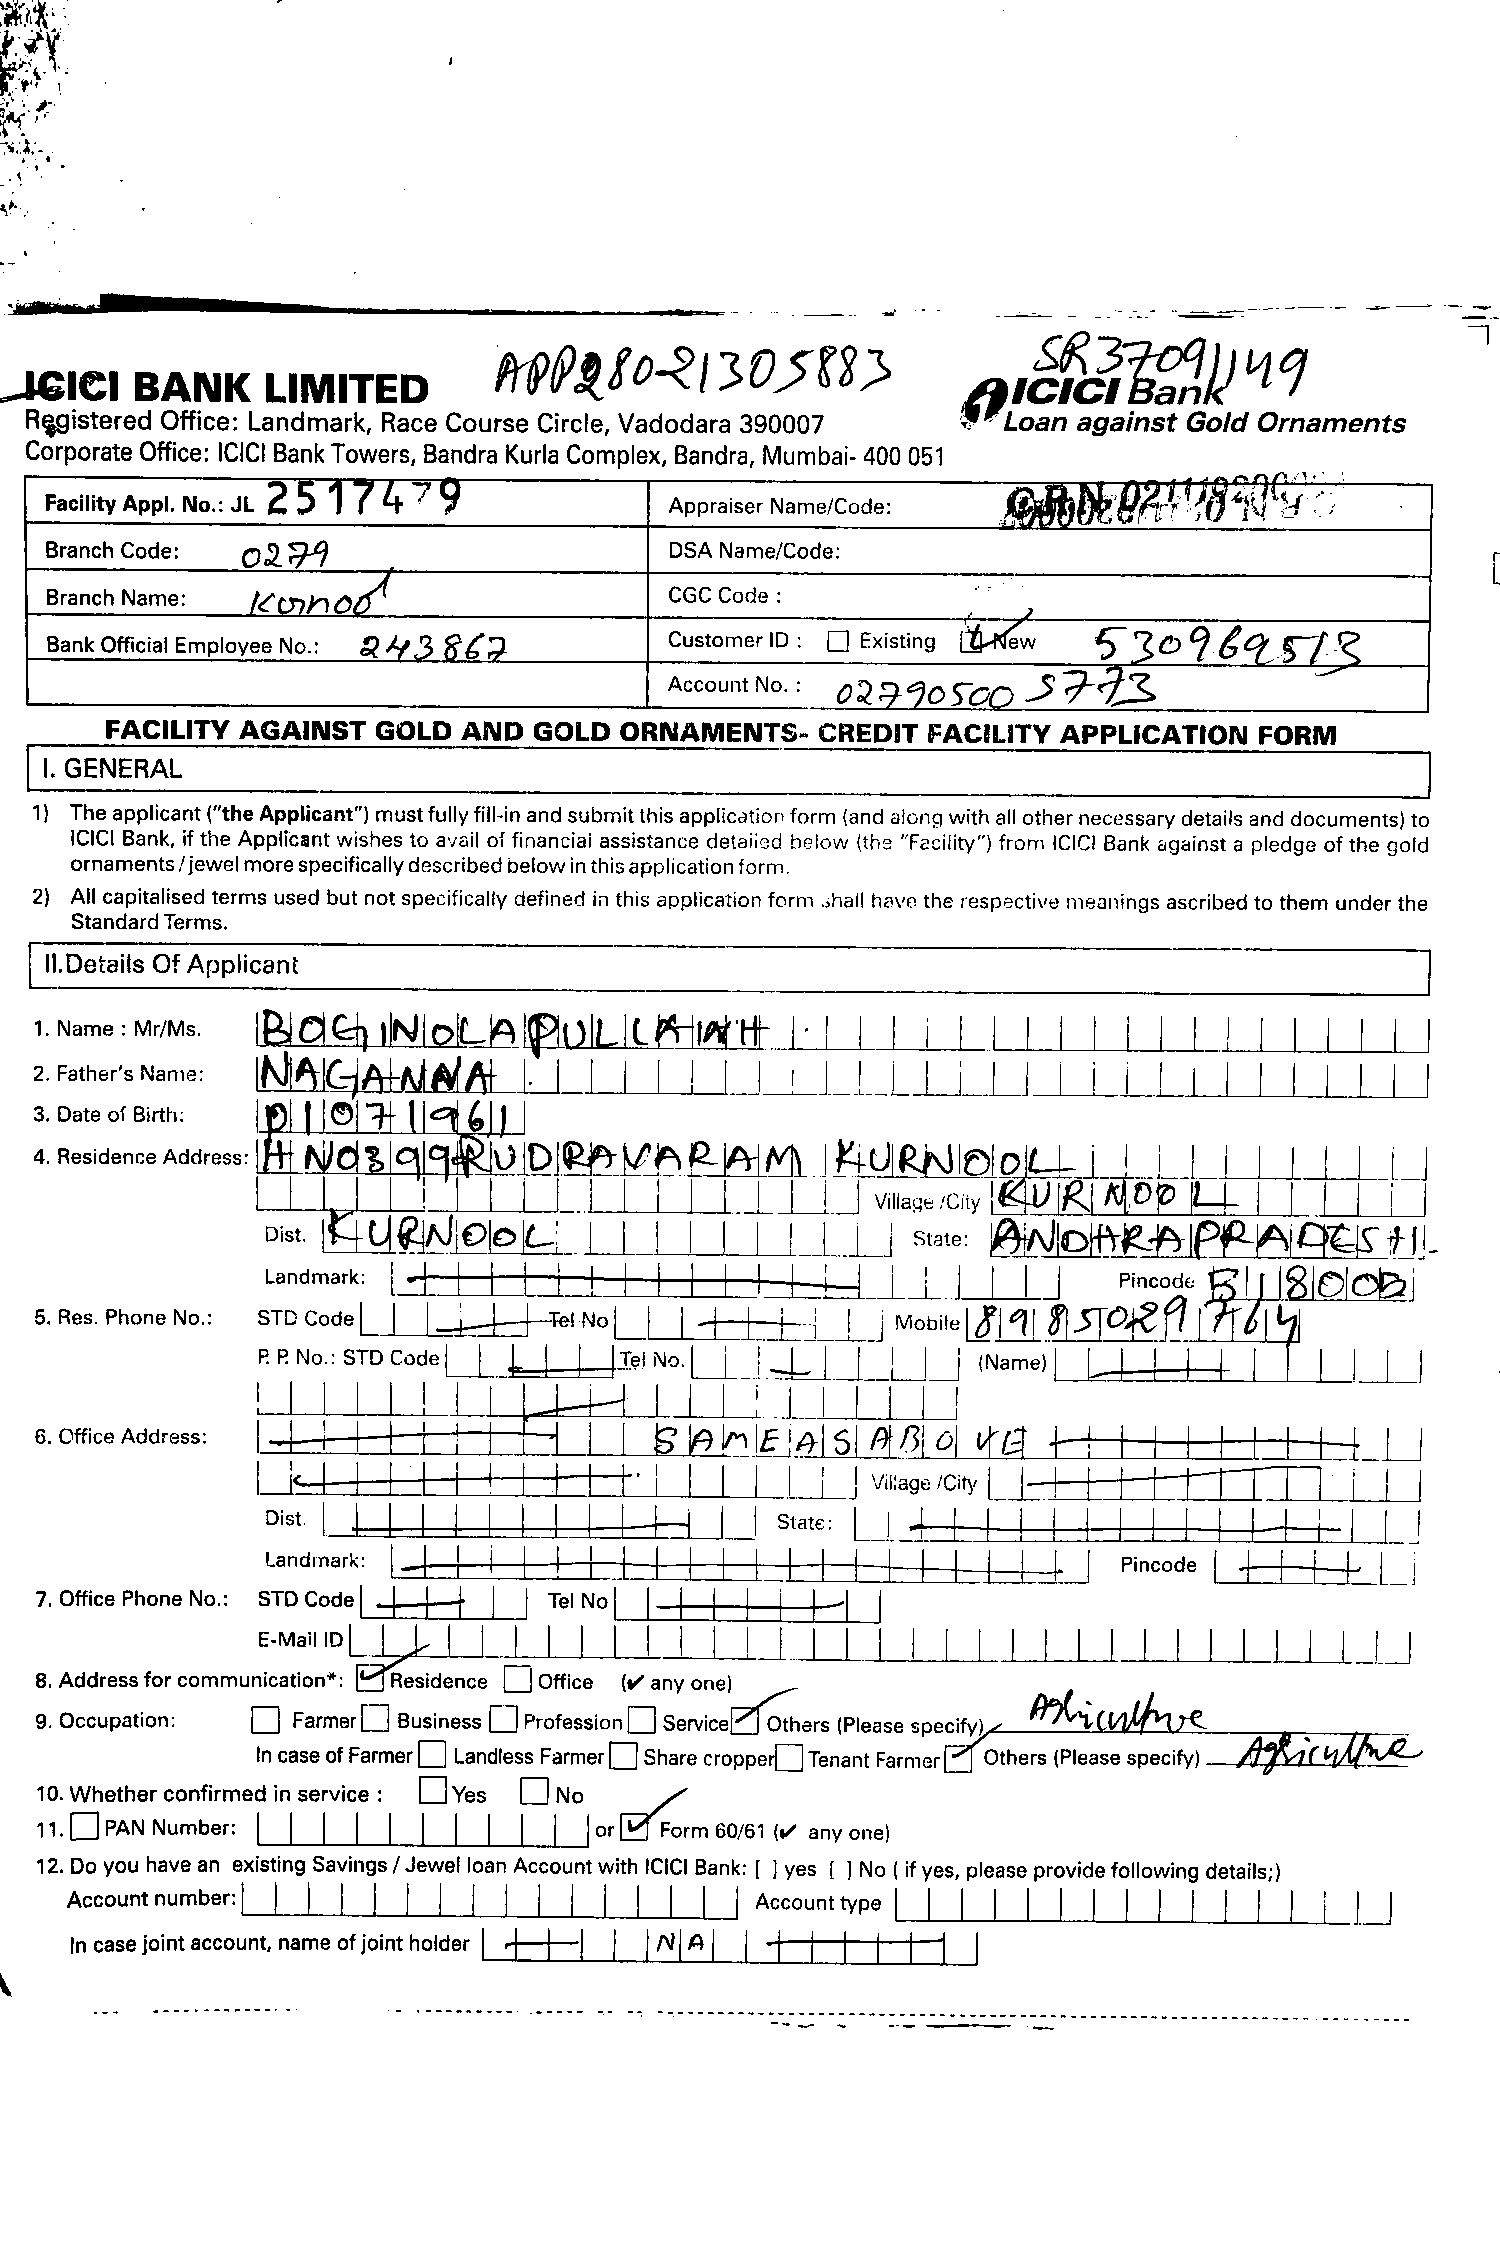 APP28021305883 SR37091149
ICICI BANK LIMITED
ICICI Bank
Registered Office: Landmark, Race Course Circle, Vadodara 390007
Loan against Gold Ornaments
Corporate Office: ICICI Bank Towers, Bandra Kurla Complex, Bandra, Mumbai- 400 051
Facility Appl. No.: JL 2517479 Appraiser Name/Code:
Branch Code: 0279 DSA Name/Code:
Branch Name: Kurnool CGC Code :
Bank Official Employee No.: 243867 Customer ID : Existing New 530969513
Account No. : 027905005773
FACILITY AGAINST GOLD AND GOLD ORNAMENTS- CREDIT FACILITY APPLICATION FORM
I. GENERAL
1) The applicant ("the Applicant") must fully fill-in and submit this application form (and along with all other necessary details and documents) to
ICICI Bank, if the Applicant wishes to avail of financial assistance detailed below (the "Facility") from ICICI Bank against a pledge of the gold
ornaments/jewel more specifically described below in this application form.
2) All capitalised terms used but not specifically defined in this application form shall have the respective meanings ascribed to them under the
Standard Terms.
II.Details Of Applicant
1. Name : Mr/Ms. BOGINOLA PULLAIAH
2. Father's Name: NAGANNA
3. Date of Birth: 01071961
4. Residence Address: H NO 399 RUDRAVARAM KURNOOL
Village /City KURNOOL
Dist. KURNOOL State: ANDHRAPRADESH
Landmark: Pincode 518002
5. Res. Phone No.: STD Code Tel No Mobile 8985029764
P. P. No.: STD Code Tel No. (Name)
6. Office Address: SAME AS ABOVE
Village /City
Dist. State:
Landmark: Pincode
7. Office Phone No.: STD Code Tel No
E-Mail ID
8. Address for communication*: ✓ Residence Office (✔ any one)
9. Occupation: Farmer Business Profession Service ✓ Others (Please specify) Agriculture
In case of Farmer Landless Farmer Share cropper Tenant Farmer ✓ Others (Please specify) Agriculture
10. Whether confirmed in service : Yes No
11. PAN Number: or ✓ Form 60/61 (✔ any one)
12. Do you have an existing Savings / Jewel loan Account with ICICI Bank: [ ] yes [ ] No ( if yes, please provide following details;)
Account number: Account type
In case joint account, name of joint holder NA